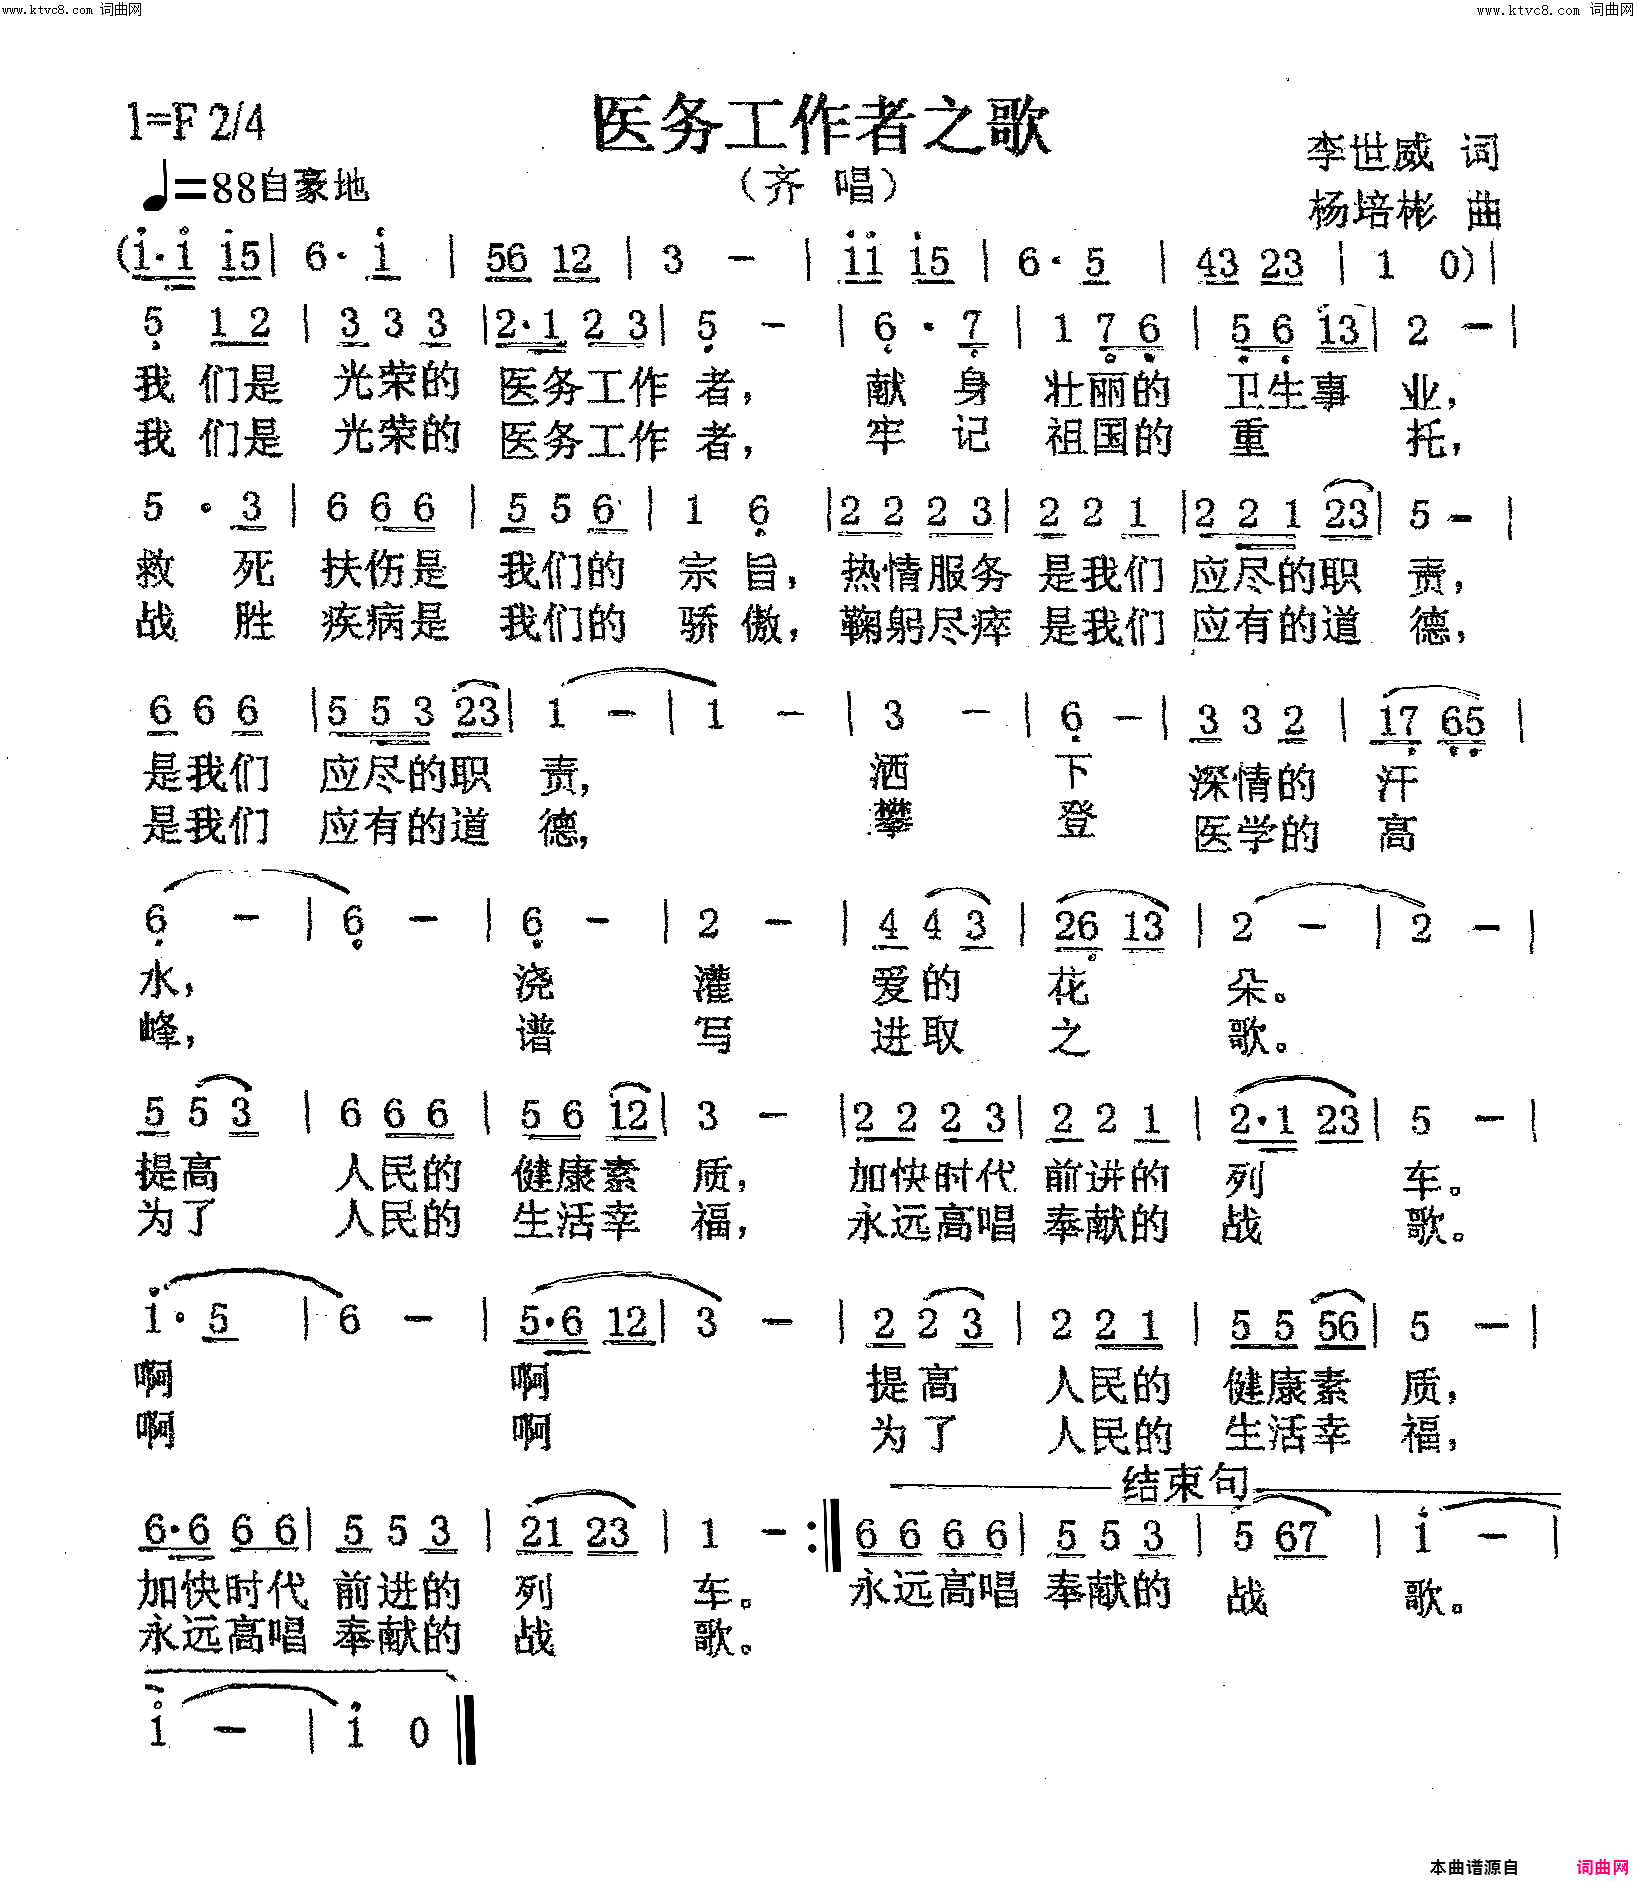 www.ktvc8.com 词曲网
www.ktvc8.com 词曲网
医务工作者之歌
1=F 2/4
♩=88自豪地
（齐 唱）
李世威 词
杨培彬 曲
(1·1 15| 6· 1 | 56 12 | 3 － | 11 15 | 6· 5 | 43 23 | 1 0)|
5 1 2 | 3 3 3 |2·1 2 3| 5 － | 6· 7 | 1 7 6 | 5 6 13| 2 －|
我 们是 光荣的 医务工作 者， 献 身 壮丽的 卫生事 业，
我 们是 光荣的 医务工作 者， 牢 记 祖国的 重 托，
5 · 3 | 6 6 6 | 5 5 6 | 1 6 |2 2 2 3| 2 2 1 |2 2 1 23| 5 － |
救 死 扶伤是 我们的 宗 旨， 热情服务 是我们 应尽的职 责，
战 胜 疾病是 我们的 骄 傲， 鞠躬尽瘁 是我们 应有的道 德，
6 6 6 |5 5 3 23| 1 － | 1 － | 3 － | 6 －| 3 3 2 | 17 65 |
是我们 应尽的职 责， 洒 下 深情的 汗
是我们 应有的道 德， 攀 登 医学的 高
6 － | 6 － | 6 － | 2 － | 4 4 3 | 26 13 | 2 － | 2 － |
水， 浇 灌 爱的 花 朵。
峰， 谱 写 进取 之 歌。
5 5 3 | 6 6 6 | 5 6 12| 3 － |2 2 2 3| 2 2 1 | 2·1 23| 5 － |
提高 人民的 健康素 质， 加快时代 前进的 列 车。
为了 人民的 生活幸 福， 永远高唱 奉献的 战 歌。
1· 5 | 6 － | 5·6 12| 3 － | 2 2 3 | 2 2 1 | 5 5 56| 5 － |
啊 啊 提高 人民的 健康素 质，
啊 啊 为了 人民的 生活幸 福，
结束句
6·6 6 6| 5 5 3 | 21 23 | 1 － :‖ 6 6 6 6| 5 5 3 | 5 67 | 1 － |
加快时代 前进的 列 车。 永远高唱 奉献的 战 歌。
永远高唱 奉献的 战 歌。
1 － | 1 0 ‖
本曲谱源自 词曲网